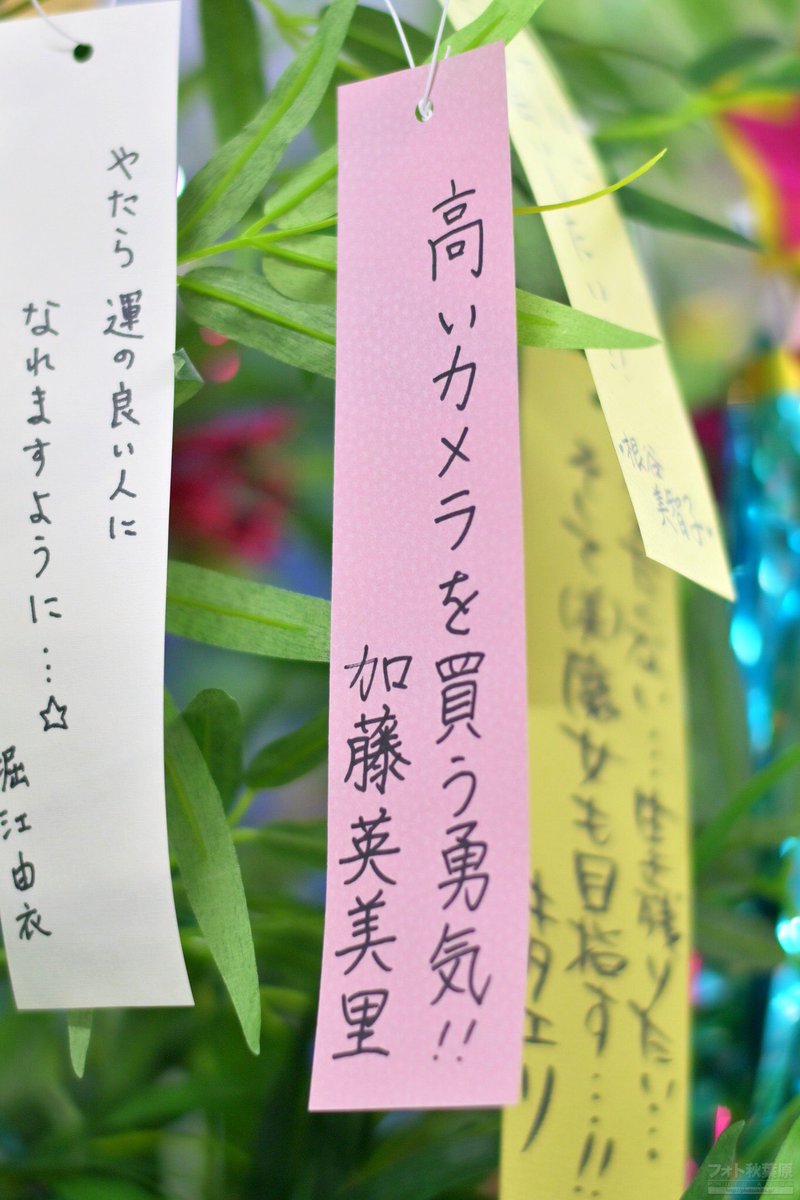 やたら 運の良い人に
なれますように…☆
堀江由衣
高いカメラを買う勇気!!
加藤英美里
根谷
美智子
生き残りたい…
そして(美)魔女も目指す…!!
キタエリ
フォト秋葉原